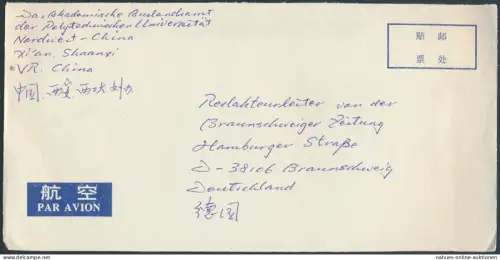 Das Akademische Auslandsamt
der Polytechnischen Universität
Nordwest-China
Xi'an, Shaanxi
VR. China
中国 西安 西大
贴 邮
票 处
Redakteurleiter von der
Braunschweiger Zeitung
Hamburger Straße
D-38106 Braunschweig
Deutschland
德国
航空
PAR AVION
www.nahues-online-auktionen.de